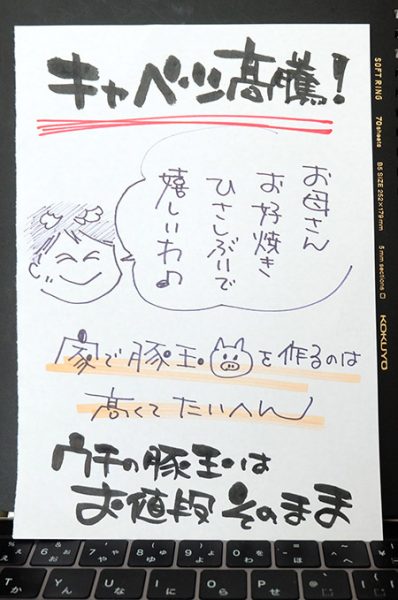 キャベツ高騰!
お母さん
お好焼き
ひさしぶりで
嬉しいわ♪
家で豚玉を作るのは
高くてたいへん
ウチの豚玉は
お値段そのまま
SOFT RING
70 sheets
B5 SIZE 252×179mm
5 mm sections
KOKUYO